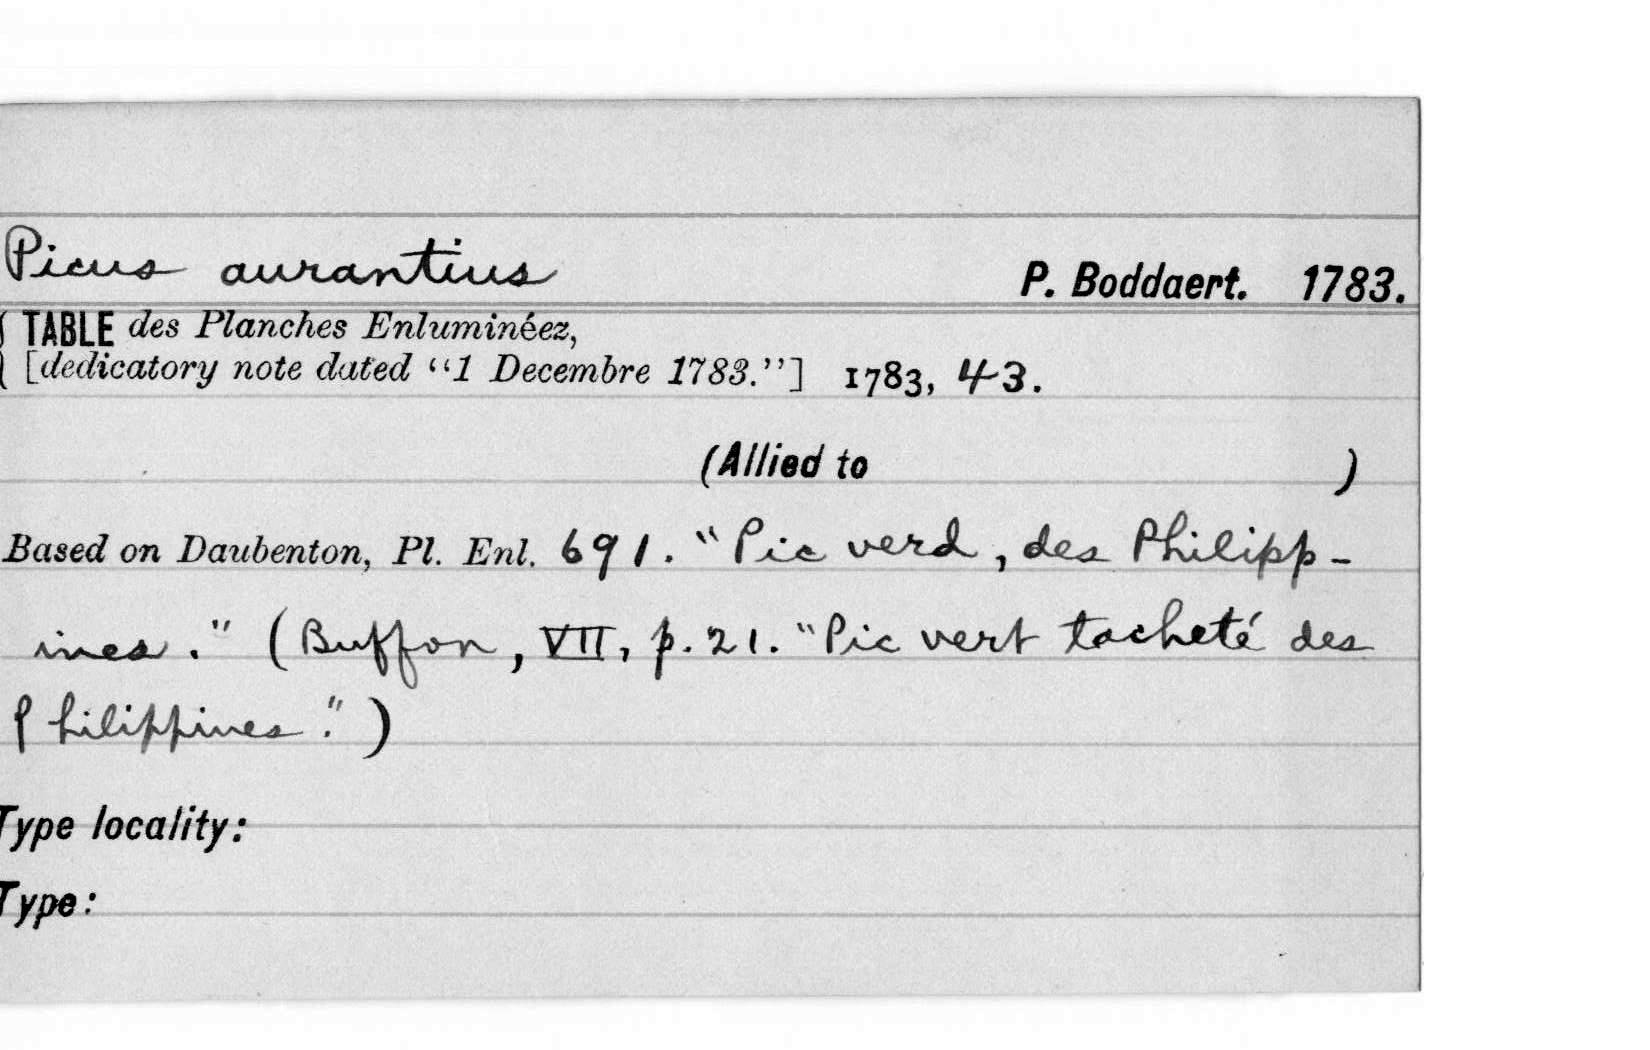 Picus aurantius P. Boddaert. 1783.
( TABLE des Planches Enluminéez,
( [dedicatory note dated “1 Decembre 1783.”] 1783, 43.
(Allied to )
Based on Daubenton, Pl. Enl. 691. "Pic verd, des Philipp-
ines." (Buffon, VII, p. 21. "Pic vert tacheté des
Philippines.")
Type locality:
Type: